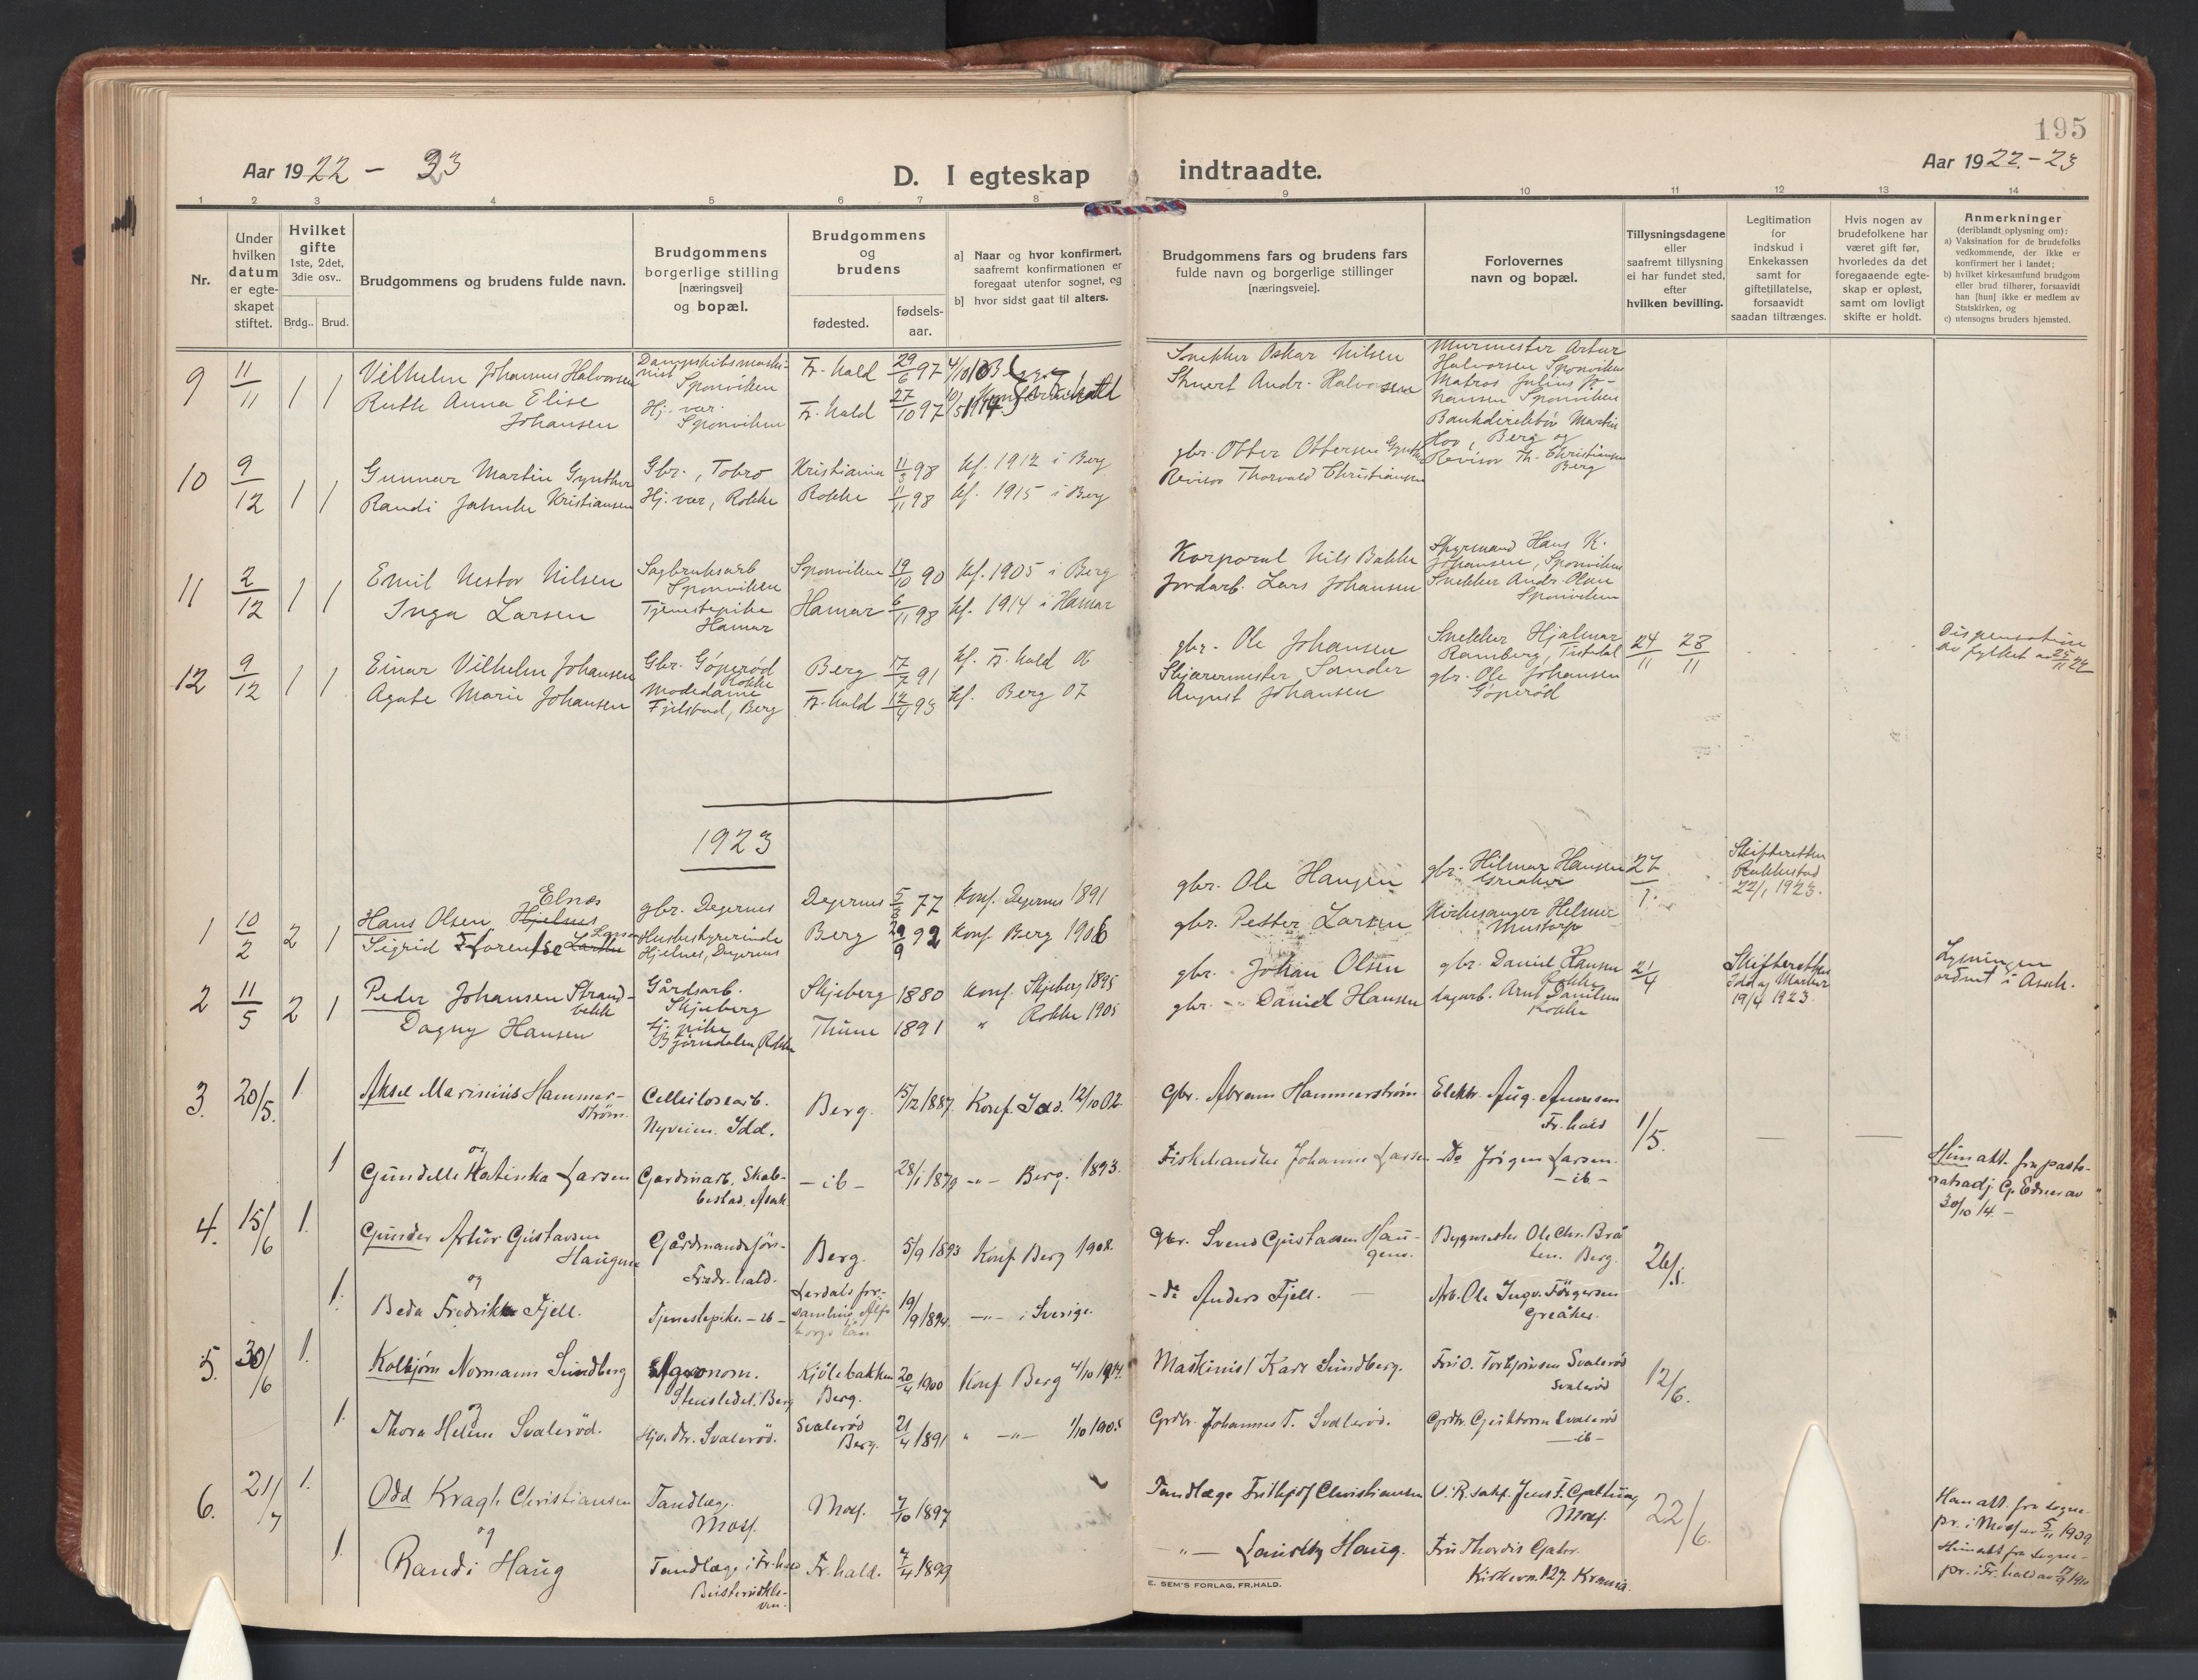 195
Aar 1922 - 23
D. I egteskap indtraadte.
Aar 1922-23
1 2 3 4 5 6 7 8 9 10 11 12 13 14
Nr.
Under hvilken datum er egteskapet stiftet.
Hvilket gifte
1ste, 2det, 3die osv..
Brdg.. Brud.
Brudgommens og brudens fulde navn.
Brudgommens borgerlige stilling [næringsvei] og bopæl.
Brudgommens og brudens
fødested.
fødsels-aar.
a] Naar og hvor konfirmert, saafremt konfirmationen er foregaat utenfor sognet, og
b] hvor sidst gaat til alters.
Brudgommens fars og brudens fars fulde navn og borgerlige stillinger [næringsveie].
Forlovernes navn og bopæl.
Tillysningsdagene eller saafremt tillysning ei har fundet sted, efter hvilken bevilling.
Legitimation for indskud i Enkekassen samt for giftetillatelse, forsaavidt saadan tiltrænges.
Hvis nogen av brudefolkene har været gift før, hvorledes da det foregaaende egteskap er opløst, samt om lovligt skifte er holdt.
Anmerkninger
(deriblandt oplysning om):
a) Vaksination for de brudefolks vedkommende, der ikke er konfirmert her i landet;
b) hvilket kirkesamfund brudgom eller brud tilhører, forsaavidt han [hun] ikke er medlem av Statskirken, og
c) utensogns bruders hjemsted.
9 11/11 1 1 Vilhelm Johannes Halvorsen Dampskibsmaskinist Sponviken Fr.hald 29/6 97 Snekker Oskar Nilsen Murmester Artur Halvorsen Sponviken
Ruth Anna Elise Johansen Hj. vær. Sponviken Fr.hald 27/10 97 Andr. Halvorsen Matros Julius Johansen Sponviken
10 9/12 1 1 Gunnar Martin Gynther Gbr., Tobro Kristiania 11/3 98 kf. 1912 i Berg gbr. Otter Ottersen Gynther Bankdirektør Martin Hov, Berg og
Randi Jahnke Kristiansen Hj. vær, Rokke Rokke 11/11 98 kf. 1915 i Berg Revisor Thorvald Christiansen Revisor Th. Christiansen Berg
11 2/12 1 1 Emil Nestor Nilsen Sagbruksarb Sponviken Sponviken 19/10 90 kf. 1905 i Berg Korporal Nils Bakke Styrmand Hans K. Johansen, Sponviken
Inga Larsen Tjenestepike Hamar Hamar 6/11 98 kf. 1914 i Hamar Jordarb. Lars Johansen Snekker Andr. Olsen Sponviken
12 9/12 1 1 Einar Vilhelm Johansen Gbr. Gøperød Rokke Berg 17/7 91 kf. Fr.hald 06 gbr. Ole Johansen Snekker Hjalmar Ramberg, Tistedal 24/11 28/11 Dispensation av fylket av 25/11 22
Agate Marie Johansen Modedame Fjelstad, Berg Fr.hald 12/4 93 kf. Berg 07 Skjærermester Sander August Johansen gbr. Ole Johansen Gøperød
1923
1 10/2 2 1 Hans Olsen Hjelnes Elnæs gbr. Degernes Degernes 5/3 77 Konf. Degernes 1891 gbr. Ole Hansen gbr. Hilmar Hansen Greaker 27/1 Skifteretten Rakkestad 22/1 1923.
Sigrid Florentse Larsen Husbestyrerinde Hjelnes, Degernes Berg 92 Konf Berg 1906 gbr. Petter Larsen Kirkesanger Helmer Mustorp
2 11/5 2 1 Peder Johansen Strandbekk Gårdsarb. Skjeberg Skjeberg 1880 Konf. Skjeberg 1895 gbr. Johan Olsen gbr. Daniel Hansen Rokke 21/4 Skifteretten Idd og Marker 19/4 1923. Lysningen ordnet i Asak.
Dagny Hansen tj. pike Bjørndalen, Rokke Thune 1891 " Rokke 1905 gbr. Daniel Hansen dagarb. Arnt Danielsen Rokke
3. 20/5. 1 Aksel Marinius Hammerstrøm Cellulosearb. Nyveien. Idd. Berg. 15/12 1887. Konf. Idd. 12/10 02 Gbr. Abram Hammerstrøm Elektr. Aug. Amunsen Fr.hald 1/5.
og
1 Gundelle Katinka Larsen Gardinarb. Skabbestad. Asak - ib - 28/1 1879 -"- Berg. 1893. Fiskehandler Johannes Larsen Do Jørgen Larsen. - ib - Hun att. fra pastoratsadj. 30/10 14. -
4. 15/6 1. Gunder Artur Gustavsen Haugene Gårdmandsfør Fredr.hald. Berg. 5/9 1893 Konf Berg 1908. Gbr. Svend Gustavsen Haugene. Bygmester Ole Chr. Bråten. Berg. 26/5.
og
1. Beda Fredrikke Fjell. Tjenestepike - ib - Lerdals forsamling Älfsborgs län 19/9 1894 -"- i Sverige. - do Anders Fjell. Arb. Ole Ingv. Jørgensen Greåker.
5. 30/6 1. Kolbjørn Normann Sundberg Agronom. Stensledet. Berg Kjølebakken Berg. 20/4 1900 Konf Berg 4/10 1914. Maskinist Karl Sundberg. Fru O. Torbjørnsen Svalerød Svalerød 12/6.
og
1. Thora Helene Svalerød. Hjv. dtr. Svalerød. Svalerød Berg. 21/4 1891 " -"- 1/10 1905 Grdbr. Johannes T. Svalerød. Grdbr. Gusttorm Svalerød - ib -
6. 21/7 1. Odd Kragh Christiansen Tandlæge. Moss. Moss. 7/10 1897 Tandlæge Frithjof Christiansen O.R.sakf. Jens F. Moss. 22/6. Han att. fra sognepr. i Moss av 5/11 1909
og
1. Randi Haug Tandlæge i Fr.hald Fr.hald. 7/4 1899 -"- Haug. Fru Thordis Kirkevn. 127. Krania. Hun att fra sognepr. i Fr.hald av 1910
E. SEM'S FORLAG, FR.HALD.